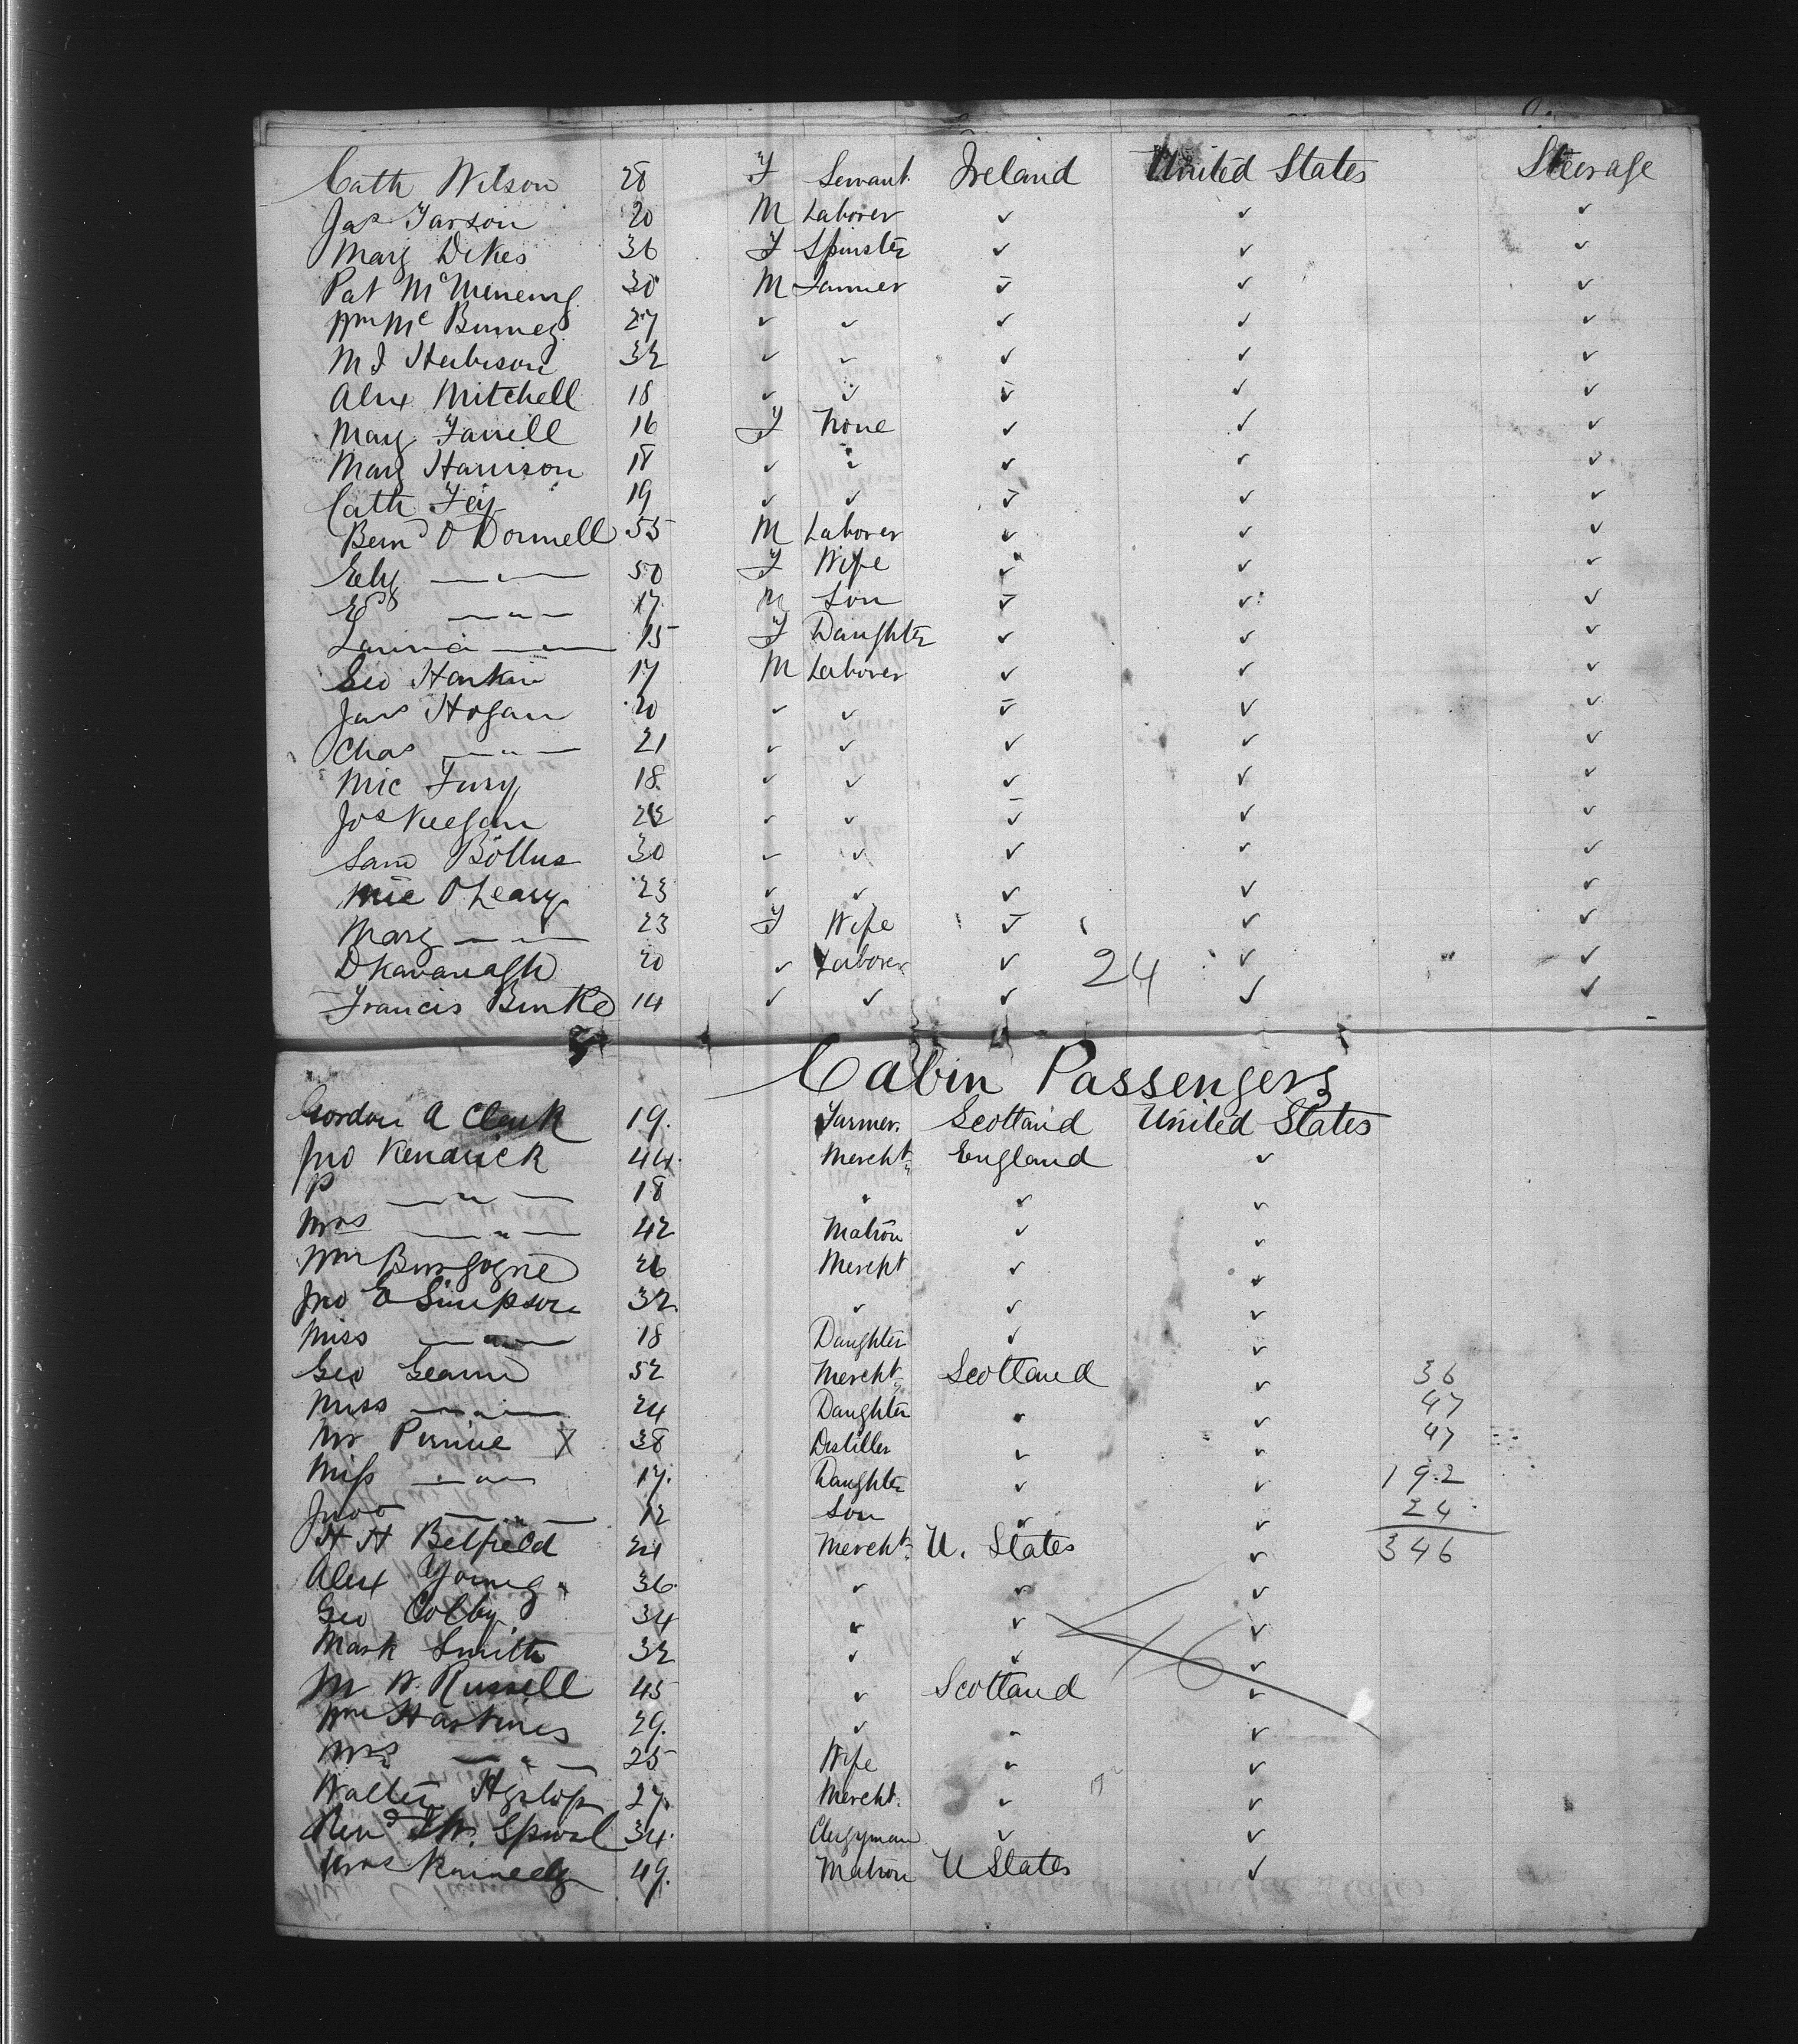 Cath Wilson 28 F Servant Ireland United States Steerage
Jas Farson 20 M Laborer ✓ ✓ ✓
Marg Dikes 36 F Spinster ✓ ✓ ✓
Pat McMenemy 30 M Farmer ✓ ✓ ✓
Wm Mc Burney 27 ✓ ✓ ✓ ✓ ✓
M J Harbison 32 ✓ ✓ ✓ ✓ ✓
Alex Mitchell 18 ✓ ✓ ✓ ✓ ✓
Mary Farrell 16 F None ✓ ✓ ✓
Mary Harrison 18 ✓ ✓ ✓ ✓ ✓
Cath Fey 19 ✓ ✓ ✓ ✓ ✓
Bernd O Donnell 55 M Laborer ✓ ✓ ✓
—"— 50 F Wife ✓ ✓ ✓
Ed —"— 17 M Son ✓ ✓ ✓
—"— 15 F Daughter ✓ ✓ ✓
Geo Harkin 17 M Laborer ✓ ✓ ✓
Jas Hogan 20 ✓ ✓ ✓ ✓ ✓
Chas —"— 21 ✓ ✓ ✓ ✓ ✓
Mic Fury 18 ✓ ✓ ✓ ✓ ✓
Jos Keegan 22 ✓ ✓ ✓ ✓ ✓
Sam 30 ✓ ✓ ✓ ✓ ✓
Mic O'Leary 23 ✓ ✓ ✓ ✓ ✓
Marg —"— 23 F Wife ✓ ✓ ✓
D Kavanagh 20 ✓ Laborer ✓ 24 ✓ ✓
Francis Burke 14 ✓ ✓ ✓ ✓ ✓
Cabin Passengers
Gordon A Clark 19. Farmer. Scotland United States
Jno Kendrick 44. Mercht England ✓
P —"— 18 " ✓ ✓
Mrs —"— 42 Matron ✓ ✓
Wm Burgoyne 26 Mercht ✓ ✓
Jno E Simpson 32. ✓ ✓ ✓
Miss —"— 18 Daughter ✓ ✓
Geo 52 Mercht Scotland ✓ 36
Miss —"— 24 Daughter ✓ ✓ 47
Mr Pirnie X 38 Distiller ✓ ✓ 47
Miss —"— 17. Daughter ✓ ✓ 192
Jno —"— 12 Son ✓ ✓ 24
H H Belfield 24 Mercht. U. States ✓ 346
Alex Young 36. ✓ ✓ ✓
Geo Colby 34 ✓ ✓ ✓
Mark Smith 32 ✓ ✓ 46 ✓
M W. Russell 45 ✓ Scotland ✓
Wm Harkines 29. ✓ " ✓
Mrs —"— 25 Wife ✓ ✓
Walter Hyslop 27. Mercht. ✓ ✓
Revd J W. 34. Clergyman ✓ ✓
Mrs Kennedy 49. Matron U States ✓